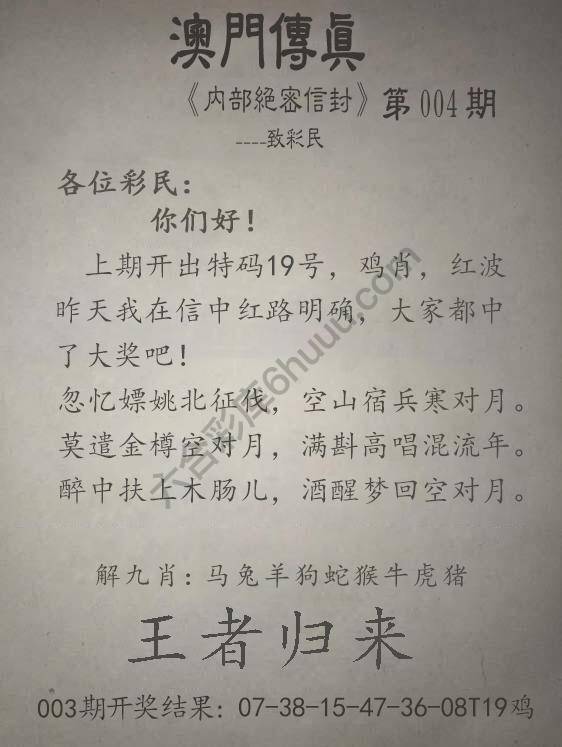 澳門傳真
《内部絕密信封》第004期
----致彩民
各位彩民：
你们好！
上期开出特码19号，鸡肖，红波
昨天我在信中红路明确，大家都中
了大奖吧！
忽忆嫖姚北征伐，空山宿兵寒对月。
莫遣金樽空对月，满斟高唱混流年。
醉中扶上木肠儿，酒醒梦回空对月。
解九肖：马兔羊狗蛇猴牛虎猪
王者归来
003期开奖结果：07-38-15-47-36-08T19鸡
六合彩库6huuu.com